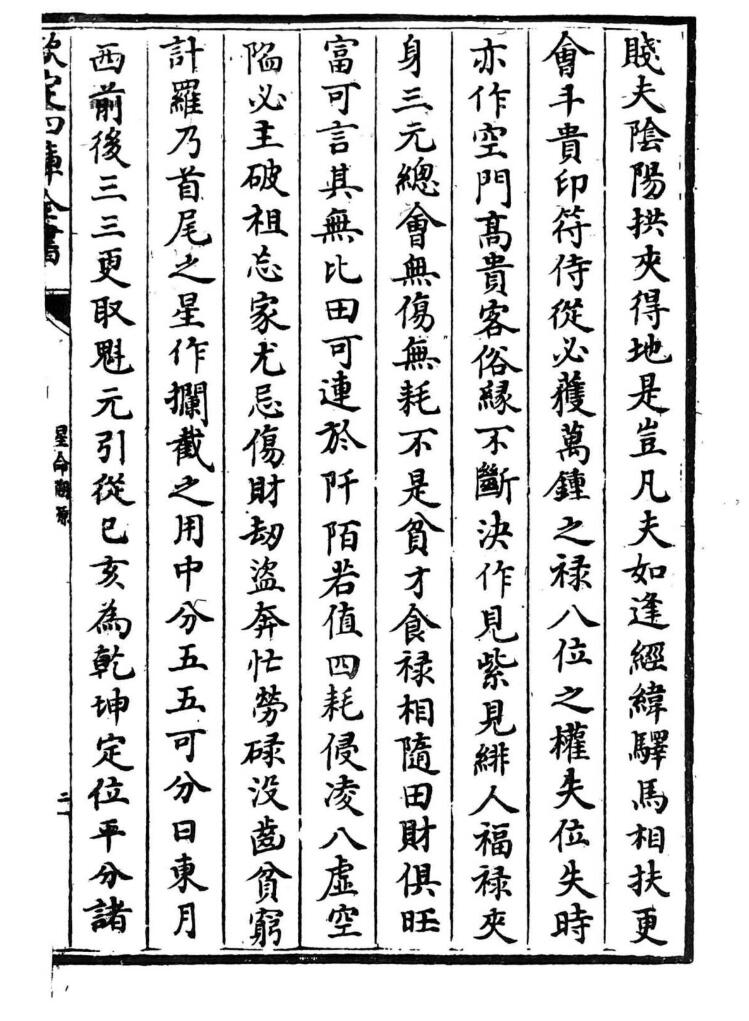 賤夫陰陽拱夾得地是豈凡夫如逢經緯驛馬相扶更
會斗貴印符侍從必獲萬鍾之禄八位之權失位失時
亦作空門髙貴客俗緣不斷決作見紫見緋人福禄夾
身三元總會無傷無耗不是貧才食禄相隨田財俱旺
富可言其無比田可連於阡陌若值四耗侵凌八虛空
陷必主破祖忘家尤忌傷財刼盜奔忙勞碌没齒貧窮
計羅乃首尾之星作攔截之用中分五五可分日東月
西前後三三更取魁元引從已亥為乾坤定位平分諸
欽定四庫全書
星命溯源
二